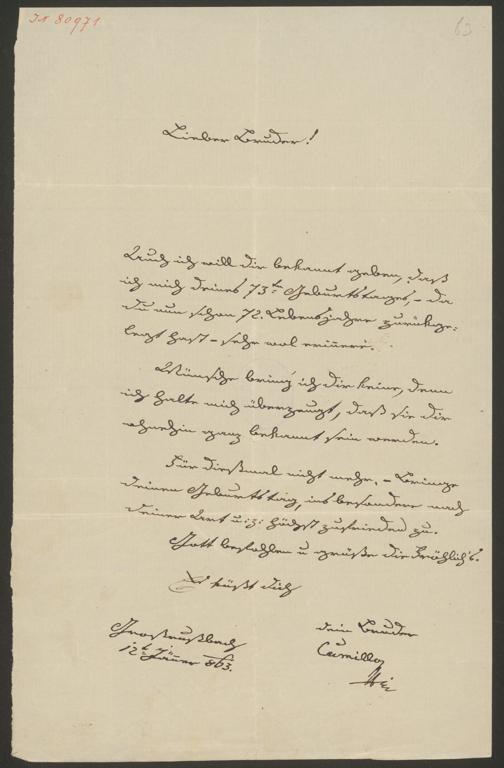 IN 80971
63
Lieber Bruder!
Auch ich will dir bekannt geben, daß
ich mich deines 73ten Geburtstages, – da
du nun schon 72. Lebensjahre zurückge:
legt hast – sehr wol erinnere.
Wünsche bring' ich dir keine, denn
ich halte mich überzeugt, daß sie dir
ohnehin ganz bekannt sein werden.
Für dießmal nicht mehr. – Bringe
deinen Geburtstag, insbesondere nach
deiner Art u: z: höchst zufrieden zu.
Gott befohlen u grüße die Fröhlich's.
Es küßt dich
dein Bruder
Camillo
Großrußbach
12t Jänner 863.